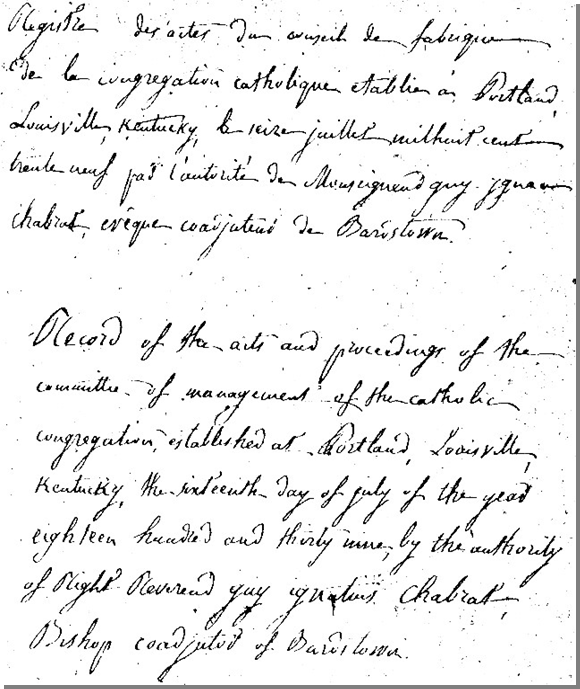 Registre des actes du conseil de fabrique
de la congregation catholique etablie à Portland,
Louisville, Kentucky, le seize juillet mil huit cent
trente neuf par l'autorité de Monseigneur guy ignace
chabrat, evêque coadjuteur de Bardstown.
Record of the acts and proceedings of the
committee of management of the catholic
congregation, established at Portland, Louisville,
Kentucky, the sixteenth day of july of the year
eighteen hundred and thirty nine, by the authority
of Right Reverend guy ignatius chabrat,
Bishop coadjutor of Bardstown.